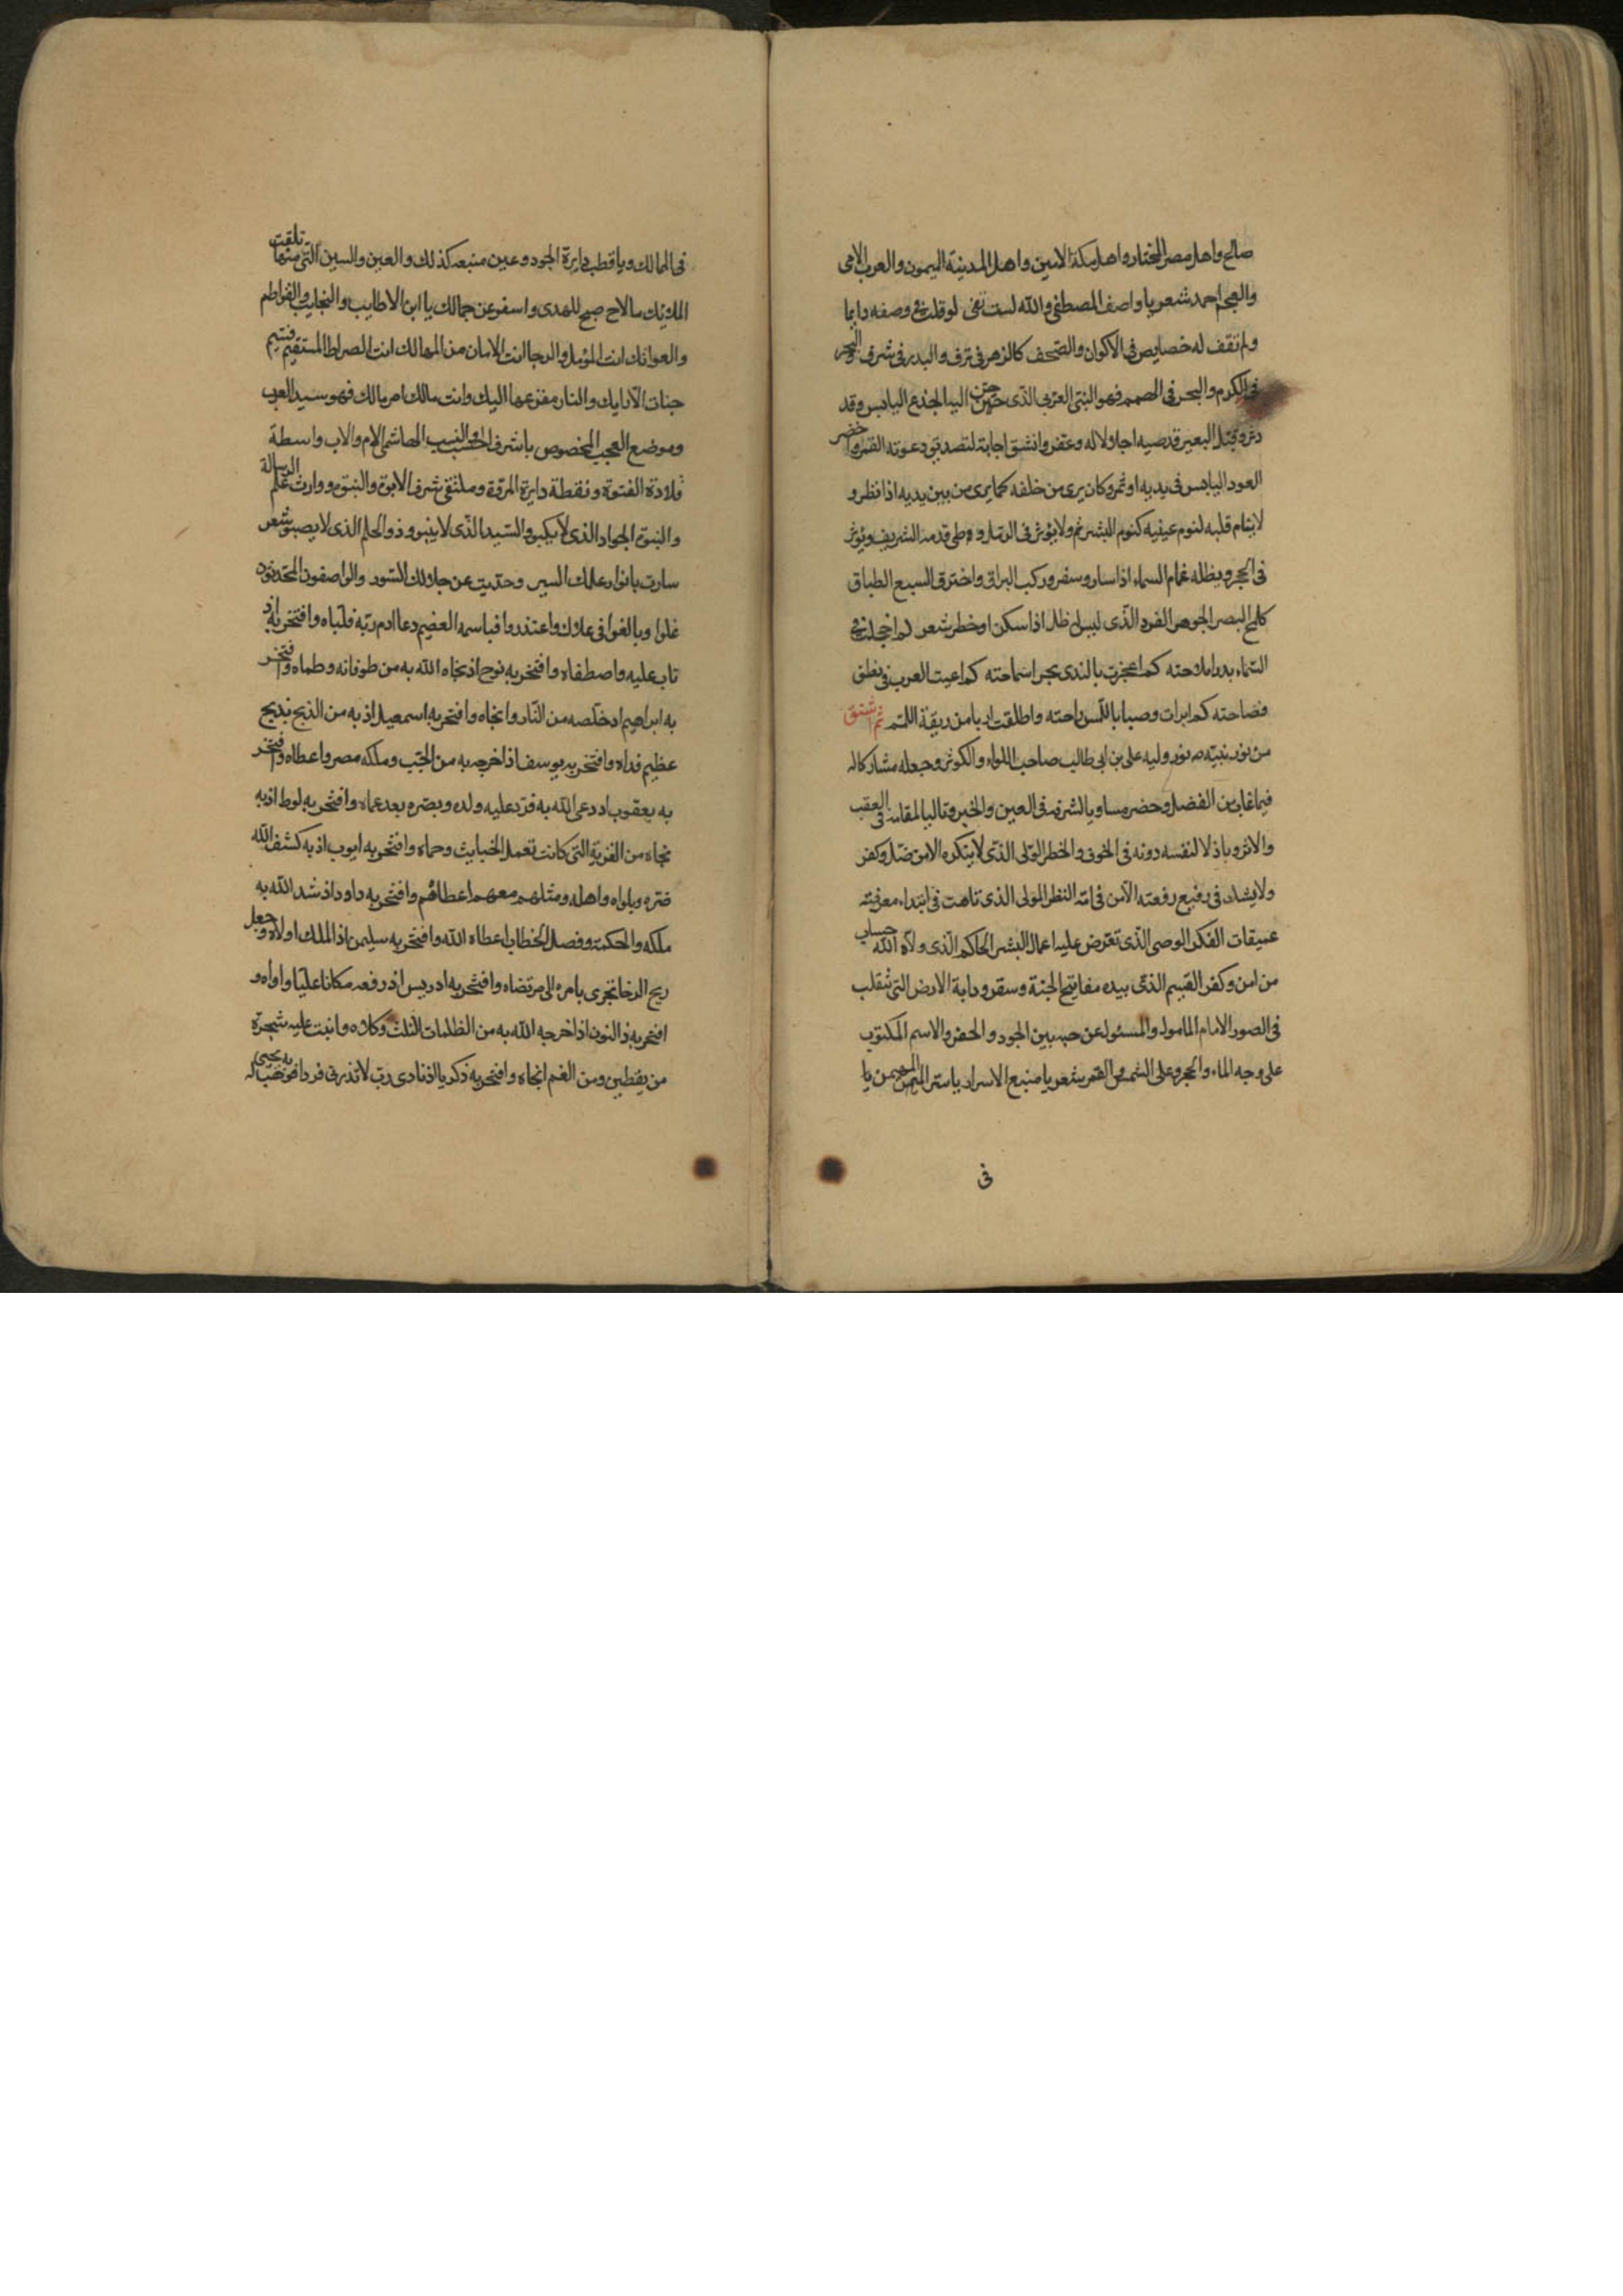 صالح واهل مصر المختار واهل مكة الامين واهل المدينة الميمون والعرب الامى
والعجم احمد شعر يا واصف المصطفى والله لست تفى لو قلت فى وصفه دايما
ولم تقف له خصايص فى الاكوان والصحف كالزهر فى ترف والبدر فى شرف والبحر
فى الكرم والبحر فى الهمم فهو النبى العربى الذى حن اليه الجذع اليابس وقد
وقبل البعير قدميه اجلالا له وعفر وانشق اجابة لتصديق دعوته القمر واخضر
العود اليابس فى يديه اوثمر وكان يرى من خلفه كما يرى من بين يديه اذا نظر و
لا ينام قلبه لنوم عينيه كنوم البشر ثم ولا يؤثر فى الرمل وطى قدمه الشريف ويؤثر
فى الحجر ويظله غمام السماء اذا سار وسفر وركب البراق واخترق السبع الطباق
كلمح البصر الجوهر الفرد الذى ليس له ظل اذا سكن او خطر شعر كم اخجلت فى
السماء بدرا ملاحته كم اعجزت بالندى بحرا سماحته كم اعيت العرب فى نطق
فصاحته كم ابرات وصبا باللمس راحته واطلقت اربا من ربقة اللمم ثم اشتق
من نور نبيه نور وليه على بن ابى طالب صاحب اللواء والكوثر وجعله مشاركا له
فيما غاب من الفضل وحضر مساويا لشرفه فى العين والخبر وتاليا لمقامه فى العقب
والاثر وباذلا لنفسه دونه فى الخوف والخطر الولى الذى لا ينكره الا من ضل وكفر
ولا يشك فى رفيع رفعته الا من فاته النظر المولى الذى تاهت فى ابتداء معرفته
عميقات الفكر الوصى الذى تعرض عليه اعمال البشر الحاكم الذى ولاه الله حساب
من امن وكفر القسيم الذى بيده مفاتيح الجنة وسقر ودابة الارض التى تتقلب
فى الصور الامام المامول والمسئول عن حبه بين الجود والحفر والاسم المكتوب
على وجه الماء والحجر وعلى الشمس والقمر شعر يا منبع الاسرار يا سر المهيمن يا
فى
فى الممالك ويا قطب دايرة الوجود وعين منبعه كذلك والعين والسين التى منها تلقت
الملائك ما لاح صبح للهدى واسفر عن جمالك يا ابن الاطايب والنجايب والفواطم
والعواتك انت المؤمل والرجا انت الامان من المهالك انت الصراط المستقيم قسيم
جنات الارايك والنار مفزعها اليك وانت مالك امر مالك فهو سيد العرب
وموضع العجب المخصوص باشرف الحسب والنسب الهاشمى الام والاب واسطة
قلادة الفتوة ونقطة دايرة المروة وملتقى شرف الابوة والنبوة ووارث علم الرسالة
والنبوة الجواد الذى لا يكبو والسيد الذى لا ينبو وذو الحلم الذى لا يصبو شعر
سارت بانوار علمك السير وحدثت عن جلالك السور والواصفون المحدثون
غلوا وبالغوا فى علاك واعتذروا فباسمه العظيم دعا ادم ربه فلباه وافتخر به اذ
تاب عليه واصطفاه وافتخر به نوح اذ نجاه الله به من طوفانه وطماه وافتخر
به ابراهيم اذ خلصه من النار وانجاه وافتخر به اسمعيل اذ به من الذبح بذبح
عظيم فداه وافتخر به يوسف اذ اخرجه به من الجب وملكه مصر واعطاه وافتخر
به يعقوب اذ دعى الله به فرد عليه ولده وبصره بعد عماه وافتخر به لوط اذ به
نجاه من القرية التى كانت تعمل الخبايث وحماه وافتخر به ايوب اذ به كشف الله
ضره وبلواه واهله ومثلهم معهم اعطاهم وافتخر به داود اذ شد الله به
ملكه والحكمة وفصل الخطاب اعطاه الله وافتخر به سليمن اذ الملك اولاه وجعل
ريح الرخا تجرى بامره الى مرتضاه وافتخر به ادريس اذ رفعه مكانا عليا واواه و
افتخر به ذا النون اذ اخرجه الله به من الظلمات الثلث وكلاه وانبت عليه شجرة
من يقطين ومن الغم انجاه وافتخر به زكريا اذ نادى رب لا تذرنى فردا فوهب له به يحيى